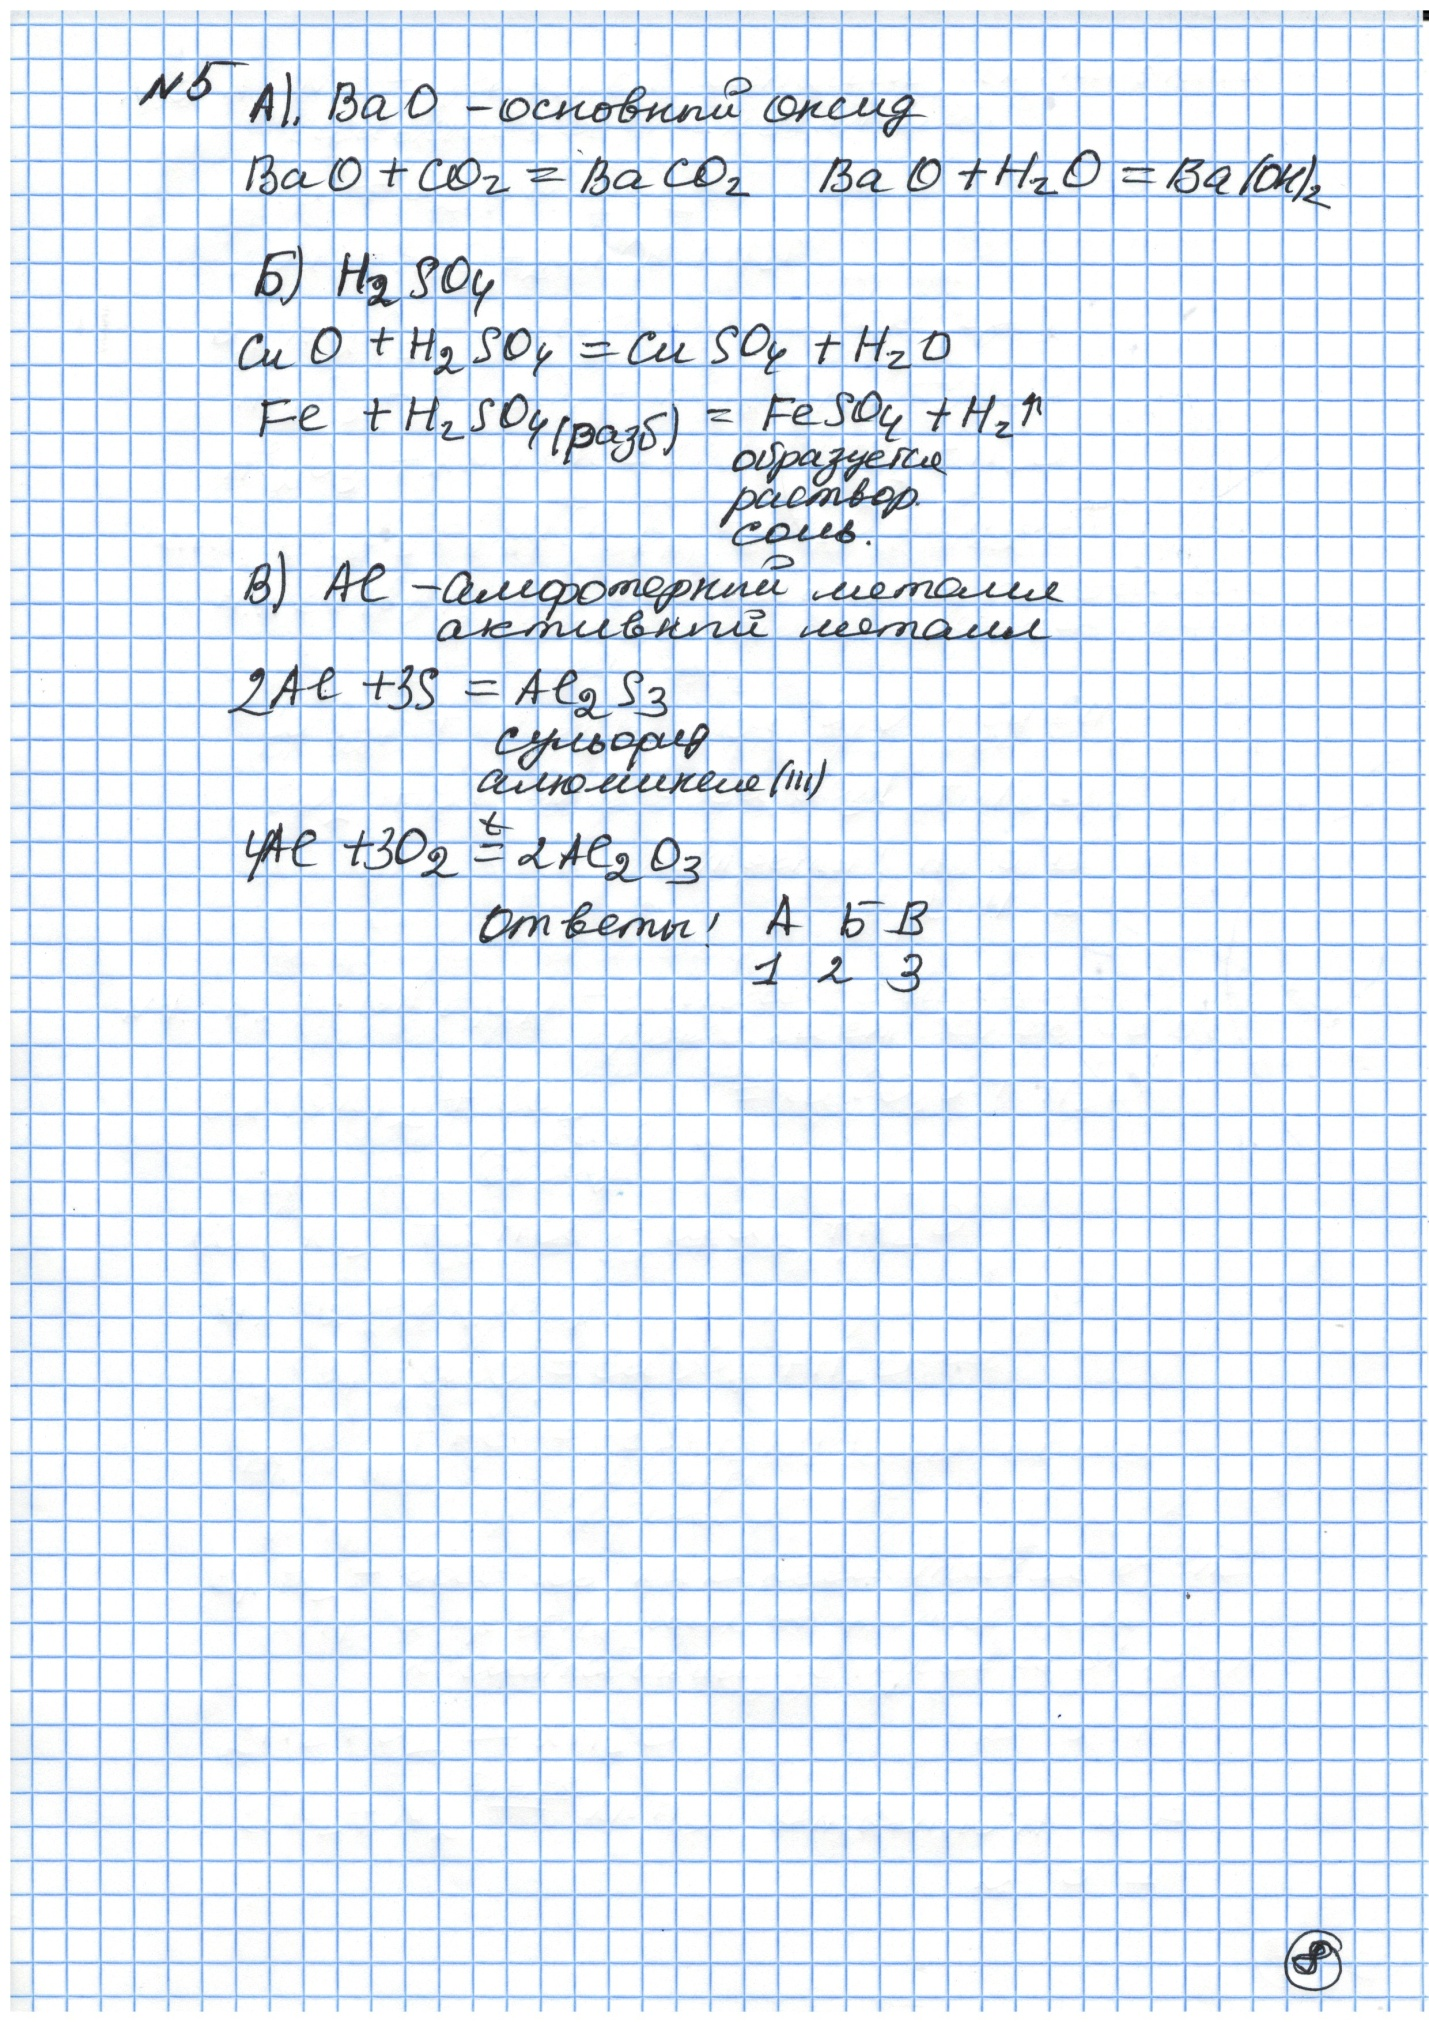 №5 А). BaO – основный оксид
BaO + CO₂ = BaCO₂ BaO + H₂O = Ba(OH)₂
Б) H₂SO₄
CuO + H₂SO₄ = CuSO₄ + H₂O
Fe + H₂SO₄(разб) = FeSO₄ + H₂↑
образуется
раствор.
соль.
В) Al – амфотерный металл
активный металл
2Al + 3S = Al₂S₃
сульфид
алюминия (III)
t
4Al + 3O₂ = 2Al₂O₃
Ответы: А Б В
1 2 3